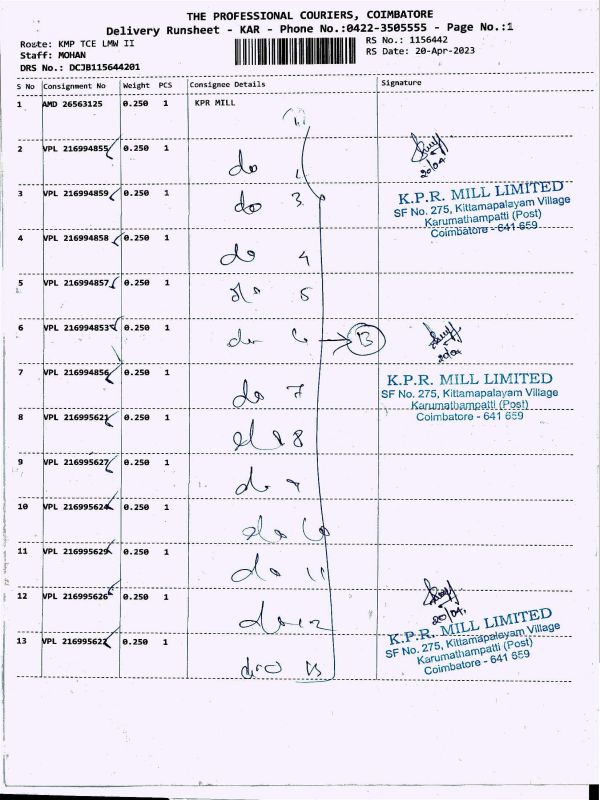 THE PROFESSIONAL COURIERS, COIMBATORE
Delivery Runsheet - KAR - Phone No.:0422-3505555 - Page No.:1
Route: KMP TCE LMW II
RS No.: 1156442
Staff: MOHAN
RS Date: 20-Apr-2023
DRS No.: DCJB115644201
S No Consignment No Weight PCS Consignee Details Signature
1 AMD 26563125 0.250 1 KPR MILL
1
2 VPL 216994855 0.250 1 do
20/04
3 VPL 216994859 0.250 1 do 3
K.P.R. MILL LIMITED
SF No. 275, Kittamapalayam Village
Karumathampatti (Post)
Coimbatore - 641 659
4 VPL 216994858 0.250 1 do 4
5 VPL 216994857 0.250 1 do 5
6 VPL 216994853 0.250 1 do 6 → 13
20/04
7 VPL 216994856 0.250 1 do 7
K.P.R. MILL LIMITED
SF No. 275, Kittamapalayam Village
Karumathampatti (Post)
Coimbatore - 641 659
8 VPL 216995621 0.250 1 do 8
9 VPL 216995627 0.250 1 do 9
10 VPL 216995624 0.250 1 do 10
11 VPL 216995629 0.250 1 do 11
12 VPL 216995626 0.250 1 do 12
20/04
13 VPL 216995622 0.250 1 do 13
K.P.R. MILL LIMITED
SF No. 275, Kittamapalayam Village
Karumathampatti (Post)
Coimbatore - 641 659